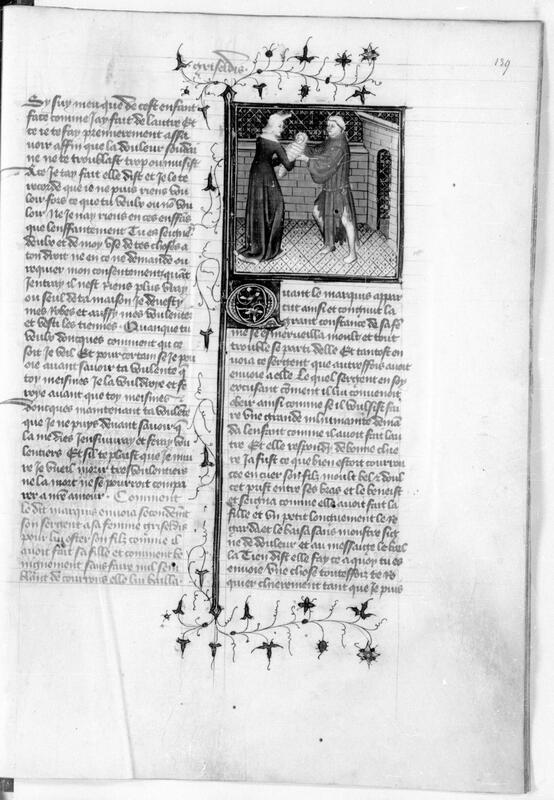 griseldis
139
Sy suy meu que de cest enfant
face comme jay fait de lautre Et
ce te fay premierement assa
uoir affin que la douleur soudai
ne ne te troublast trop ou nuisist
A ce jay fait elle dist et je le te
recorde que je ne puis riens vou
loir fors ce que tu veulz ou non vou
loir Ne je nay riens en ces enfans
que lenfantement Tu es seigneur
deulx et de moy use de tes choses a
ton droit ne en ce ne demande ou
requier mon consentement quant
jentray il nest riens plus vray
ou seul de ta maison je devesty
mes robes et aussy mes voulentez
et vesti les tiennes Quanque tu
veulx doncques comment que ce
soit je vueil Et pour certain se je pou
oie avant savoir ta voulente que
toy meismes je la vouldroye et fe
roye avant que toy meismes
doncques maintenant ta voulente
que je ne puys devant savoir quant
la me dies jensuivray et feray vou
lentiers Et sil te plaist que je mu
re je vueil mourir tres voulentiers
ne la mort ne se pourroit compa
rer a nostre amour Comment
le dit marquis envoia secondement
son sergent a sa femme griseldis
pour luy oster son filz comme il
avoit fait sa fille et comment be
nignement sans faire nul sem
blant de courroux elle lui bailla
Quant le marquis apper
cut ainsi et congnut la
grant constance de sa fe
me se esmerveilla moult et tout
trouble se parti delle Et tantost en
voia ce sergent que autresfois avoit
envoie a elle Le quel sergent en soy
excusant comment il lui convenoit
obeir ainsi comme se il voulsist fai
re une grande inhumanite deman
da lenfant comme il avoit fait lau
tre Et elle respondi de bonne chie
re ja fust ce que bien estoit courrou
cee en cuer son filz moult bel et doul
cet prist entre ses bras et le beneist
et seigna comme elle avoit fait la
fille et un petit longuement le re
garda et le baisa sans monstrer sig
ne de douleur et au messaige le bail
la Tien dist elle fay ce a quoy tu es
envoie une chose toutesfoiz te re
quier chierement tant que je puis